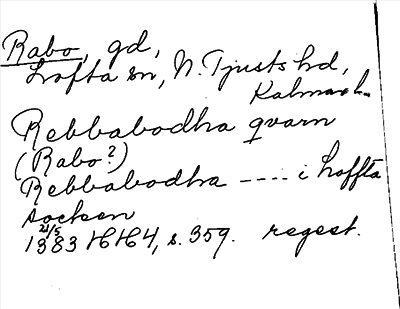 Rabo, gd,
Lofta sn, N. Tjusts hd,
Kalmar l.
Rebbabodha qvarn
(Rabo?)
Rebbabodha ---- i hoffta
socken
21/5
1383 HH4, s. 359. regest.